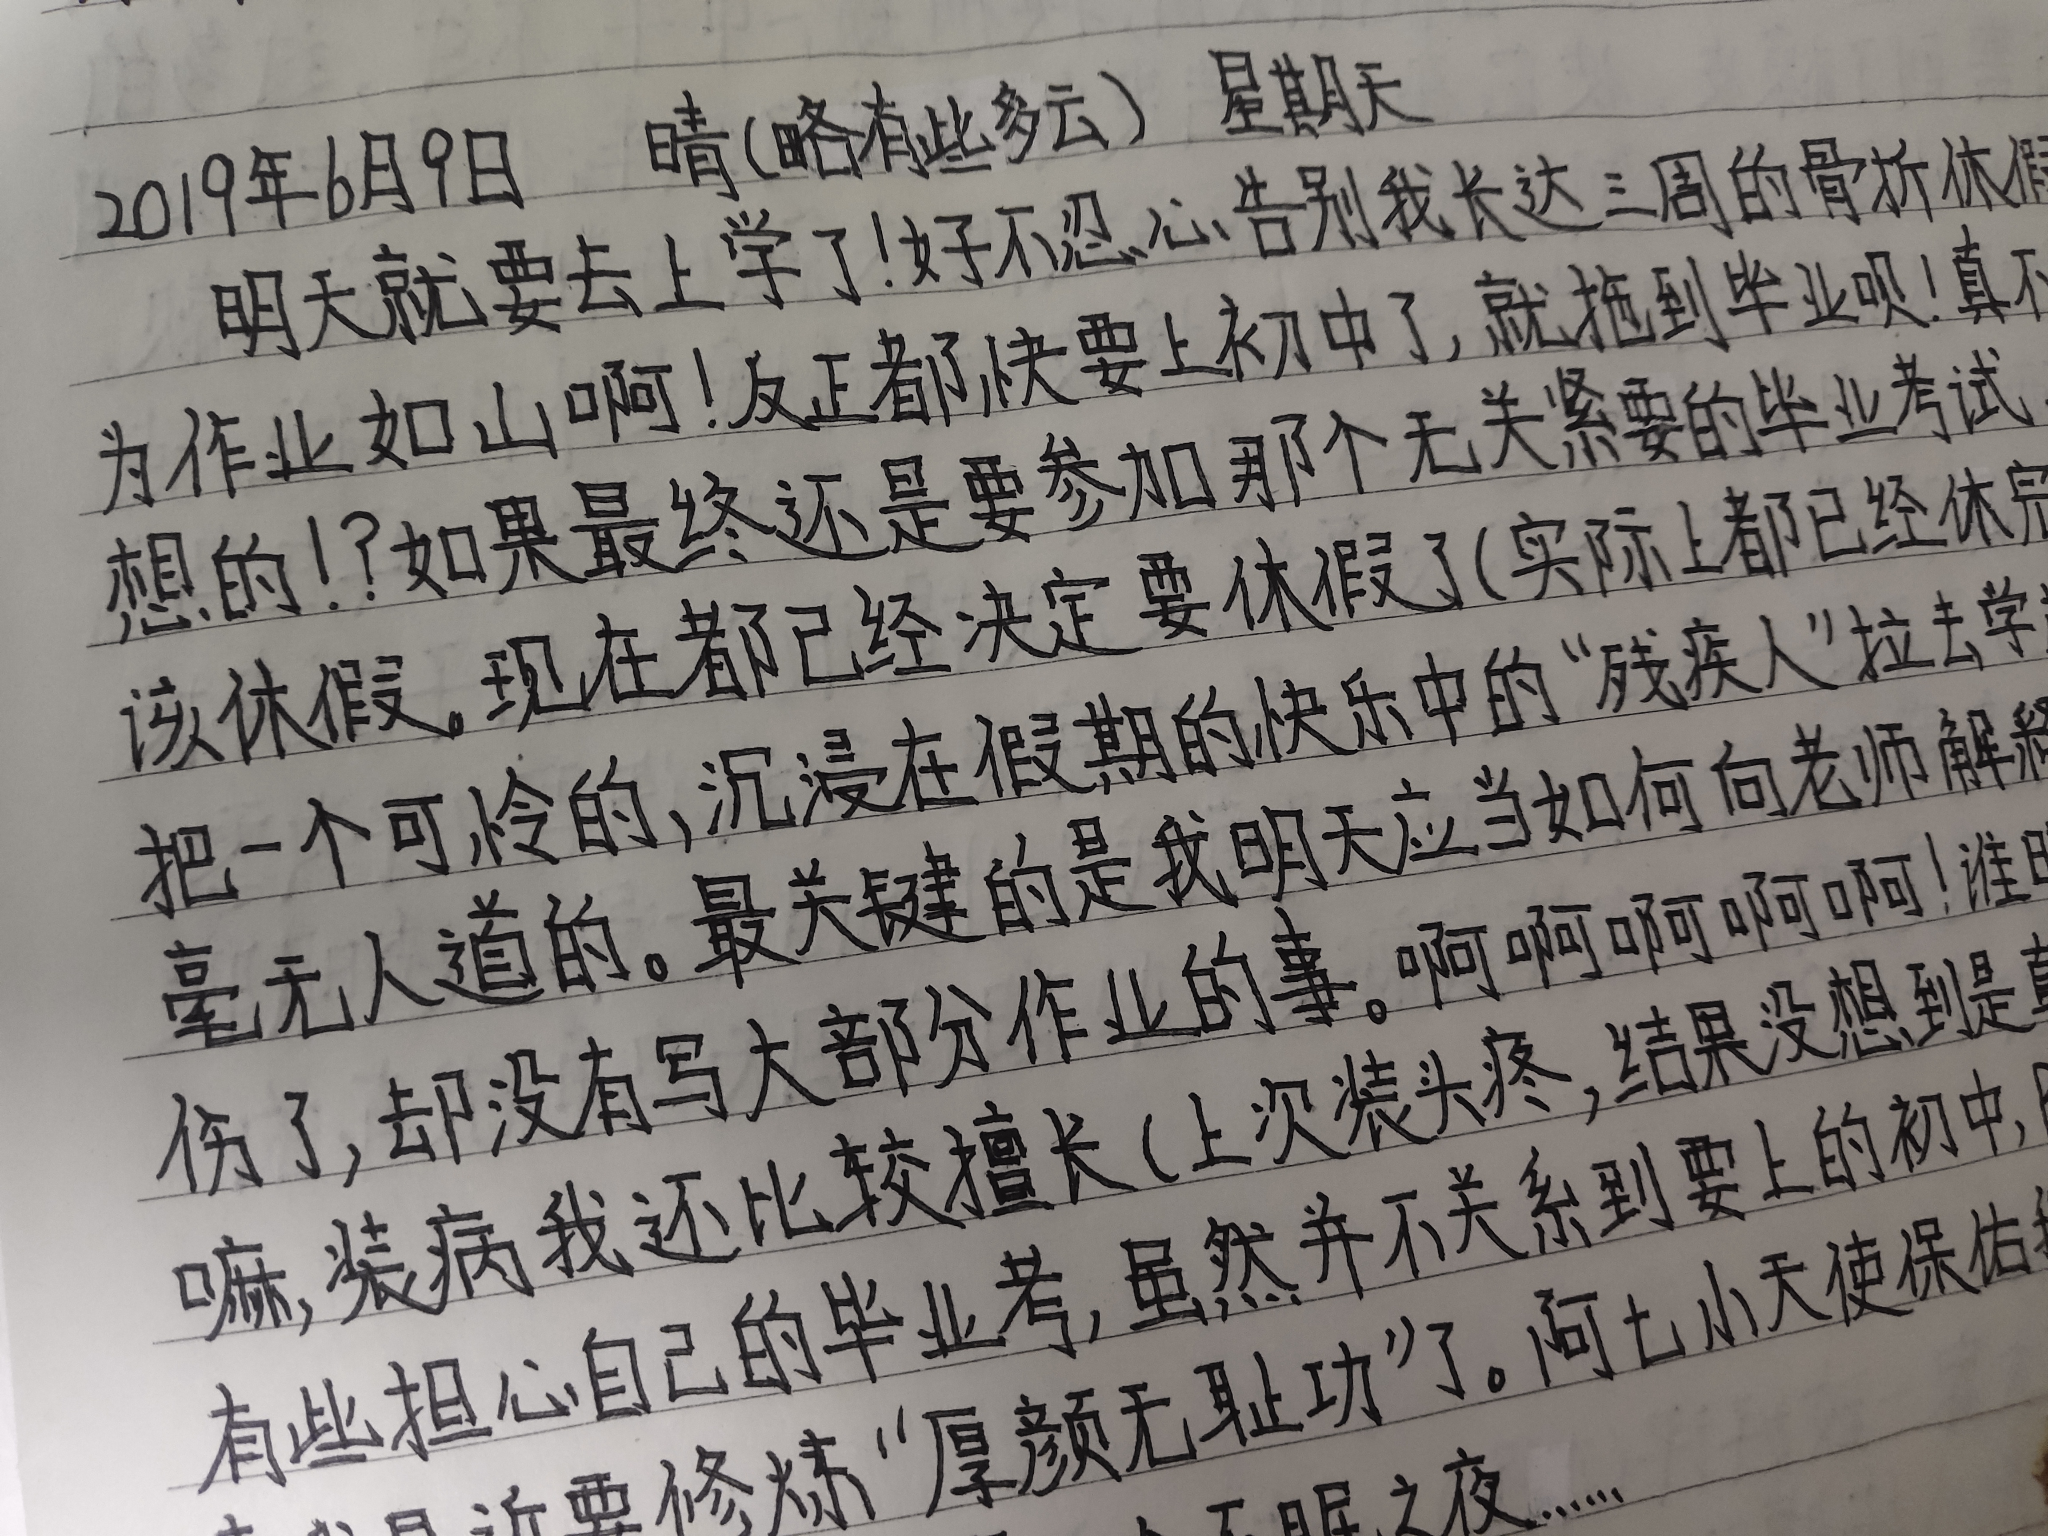 2019年6月9日 晴(略有些多云) 星期天
明天就要去上学了!好不忍心告别我长达三周的骨折休假
为作业如山啊!反正都快要上初中了,就拖到毕业呗!真不
想的!?如果最终还是要参加那个无关紧要的毕业考试
该休假。现在都已经决定要休假了(实际上都已经休完
把一个可怜的,沉浸在假期的快乐中的“残疾人”拉去学
毫无人道的。最关键的是我明天应当如何向老师解释
伤了,却没有写大部分作业的事。啊啊啊啊啊!谁
嘛,装病我还比较擅长(上次装头疼,结果没想到是真
有些担心自己的毕业考,虽然并不关系到要上的初中,
我最近要修炼“厚颜无耻功”了。阿七小天使保佑我
个不眠之夜……